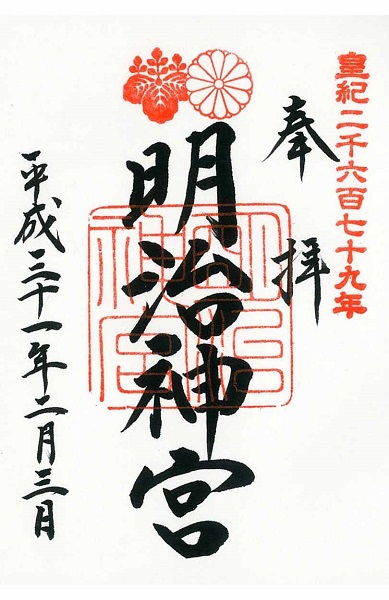 皇紀二千六百七十九年
奉拝
明治神宮
明治神宮
平成三十一年二月三日